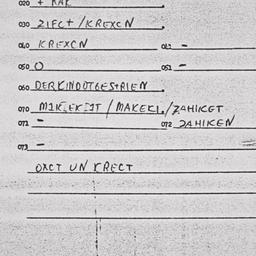 020 + KAK
030 ZIFCT / KREXCN
040 KREXCN 042 -
050 O 052 -
060 DERKINDOTGESTRIEN
070 / MAKEKL / ZAHIKET
071 - 072 ZAHIKEN
073 -
OXCT UN KRECT